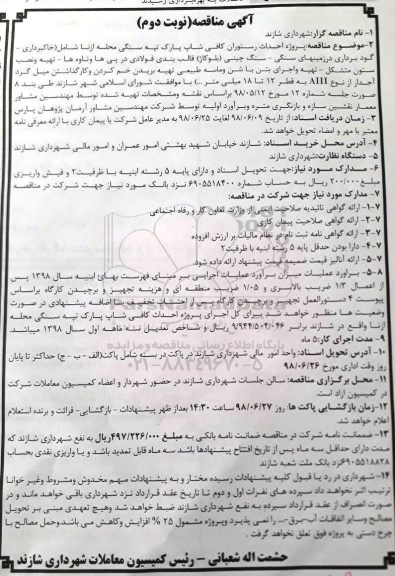 آگهی مناقصه(نوبت دوم)
۱- نام مناقصه گزار:شهرداری شازند
۲-موضوع مناقصه:پروژه احداث رستوران کافی شاپ پارک تپه سنگی محله ازنـا شامل(خاکبرداری -
گود برداری درزمینهای سنگی - سنگ چینی (بلوکاژ) قالب بندی فولادی در پی ها وتاوه ها - تهیه ونصب
ستون متشکل - تهیه واجرای بتن با شن وماسه طبیعی تهیه بریدن خم کردن وکارگذاشتن میل گرد
آجدار از نوع AIII به قطر ۱۲ تا ۱۸ میلی متر ...) با موافقت شورای اسلامی شهر شازند طی بند ۸
صورت جلسه شماره ۱۲ مورخ ۹۸/۰۵/۱۲ براساس نقشه ومشخصات تهیه شده توسط مهندسین مشاور
معمار نقشین سازه و بازنگری متره وبرآورد اولیه توسط شرکت مهندسین مشاور آرمان پژوهان پارس
۳- زمان دریافت اسناد: از تاریخ ۹۸/۰۶/۰۹ لغایت ۹۸/۰۶/۲۵ به مدیر عامل شرکت یا پیمان کاری با ارائه معرفی نامه
معتبر با مهر و امضاء تحویل خواهد شد.
۴- آدرس محل خرید اسناد: شازند خیابان شهید بهشتی امور عمران و امور مالی شهرداری شازند
۵- دستگاه نظارت:شهرداری شازند
۶- مدارک مورد نیاز:جهت تحویل اسناد و دارای پایه ۵ رشته ابنیه با ظرفیت۲ و فیش واریزی
مبلغ ۲۰۰/۰۰۰ ریال به حساب شماره ۶۹۰۵۵۱۸۴۰۰ نزد بانک مورد نیاز جهت شرکت در مناقصه
۷- مدارک مورد نیاز جهت شرکت در مناقصه:
۷-۱- ارائه گواهی تائیدیه صلاحیت ایمنی از وزارت تعاون کار و رفاه اجتماعی
۷-۲- ارائه گواهی صلاحیت پیمان کاری
۷-۳- ارائه گواهی نامه ثبت نام در نظام مالیات بر ارزش افزوده
۷-۴- دارا بودن حداقل پایه ۵ رشته ابنیه با ظرفیت ۲
۷-۵- ارائه آنالیز قیمت ضمیمه قیمت پیشنهاد ارائه داده شود.
۸- برآورد عملیات میزان برآورد عملیات اجرایی بر مبنای فهرست بهای ابنیه سال ۱۳۹۸ پس
از اعمال ۱/۳ ضریب بالاسری و ۱/۰۵ ضریب منطقه ای و هزینه تجهیز و برچیدن کارگاه براساس
پیوست ۴ دستورالعمل تجهیز و برچیدن کارگاه پس از اعمال تخفیف یا اضافه پیشنهادی در صورت
وضعیت ها منظور خواهد شد برای کل اجرای پروژه احداث کافی شاپ پارک تپه سنگی محله
ازنا واقع در شازند برابر ۹/۹۴۴/۵۰۴/۰۴۶ ریال و شاخص تعدیل سه ماهه اول سال ۱۳۹۸ میباشد.
۹- مدت اجرای کار:۵ ماه
۱۰- آدرس تحویل اسناد: واحد امور مالی شهرداری شازند در پاکت در بسته شامل پاکت(الف - ب - ج) حداکثر تا پایان
روز وقت اداری مورخ ۹۸/۰۶/۲۶
۱۱- محل برگزاری مناقصه: سالن جلسات شهرداری شازند در حضور شهردار و اعضاء کمیسیون معاملات شرکت
در کمیسیون آزاد است.
۱۲- زمان بازگشایی پاکت ها: روز ۹۸/۰۶/۲۷ ساعت ۱۴:۳۰ بعداز ظهر پیشنهادات - بازگشایی- قرائت و برنده استعلام
اعلام خواهد شد.
۱۳- ضمانت نامه شرکت در مناقصه ضمانت نامه بانکی به مبلغ ۴۹۷/۲۲۶/۰۰۰ریال به نفع شهرداری شازند که
مدت دارای حداقل سه ماه پس از تاریخ افتتاح پیشنهادها باشد سه ماه قابل تمدید باشد و یا واریزی نقدی بحساب
۶۹۰۵۵۱۸۸۲۸نزد بانک ملت شعبه شازند
۱۴- شهرداری در رد یا قبول کلیه پیشنهادات رسیده مختار و به پیشنهادات مبهم مخدوش ومشروط وغیر خوانا
ترتیب اثر نخواهد داد سپرده های نفرات اول و دوم تا تاریخ عقد قرارداد نزد شهرداری باقی خواهد ماند و در
صورت انصراف از عقد قرارداد سپرده به نفع شهرداری شازند ضبط خواهد شد وهیچ تعهدی مبنی بر تحویل
مصالح وسایر اتفاقات آب-برق-... را نمی پذیرد وپروژه مشمول ۲۵ % افزایش وکاهش می باشد.وحمل مصالح با
چرخ دستی به پروژه فوق تعلق نخواهد گرفت .
حشمت اله شعبانی - رئیس کمیسیون معاملات شهرداری شازند
پایگاه اطلاع رسانی مناقصه و مزایده
۰۲۱-۸۸۳۴۹۶۷۰-۵